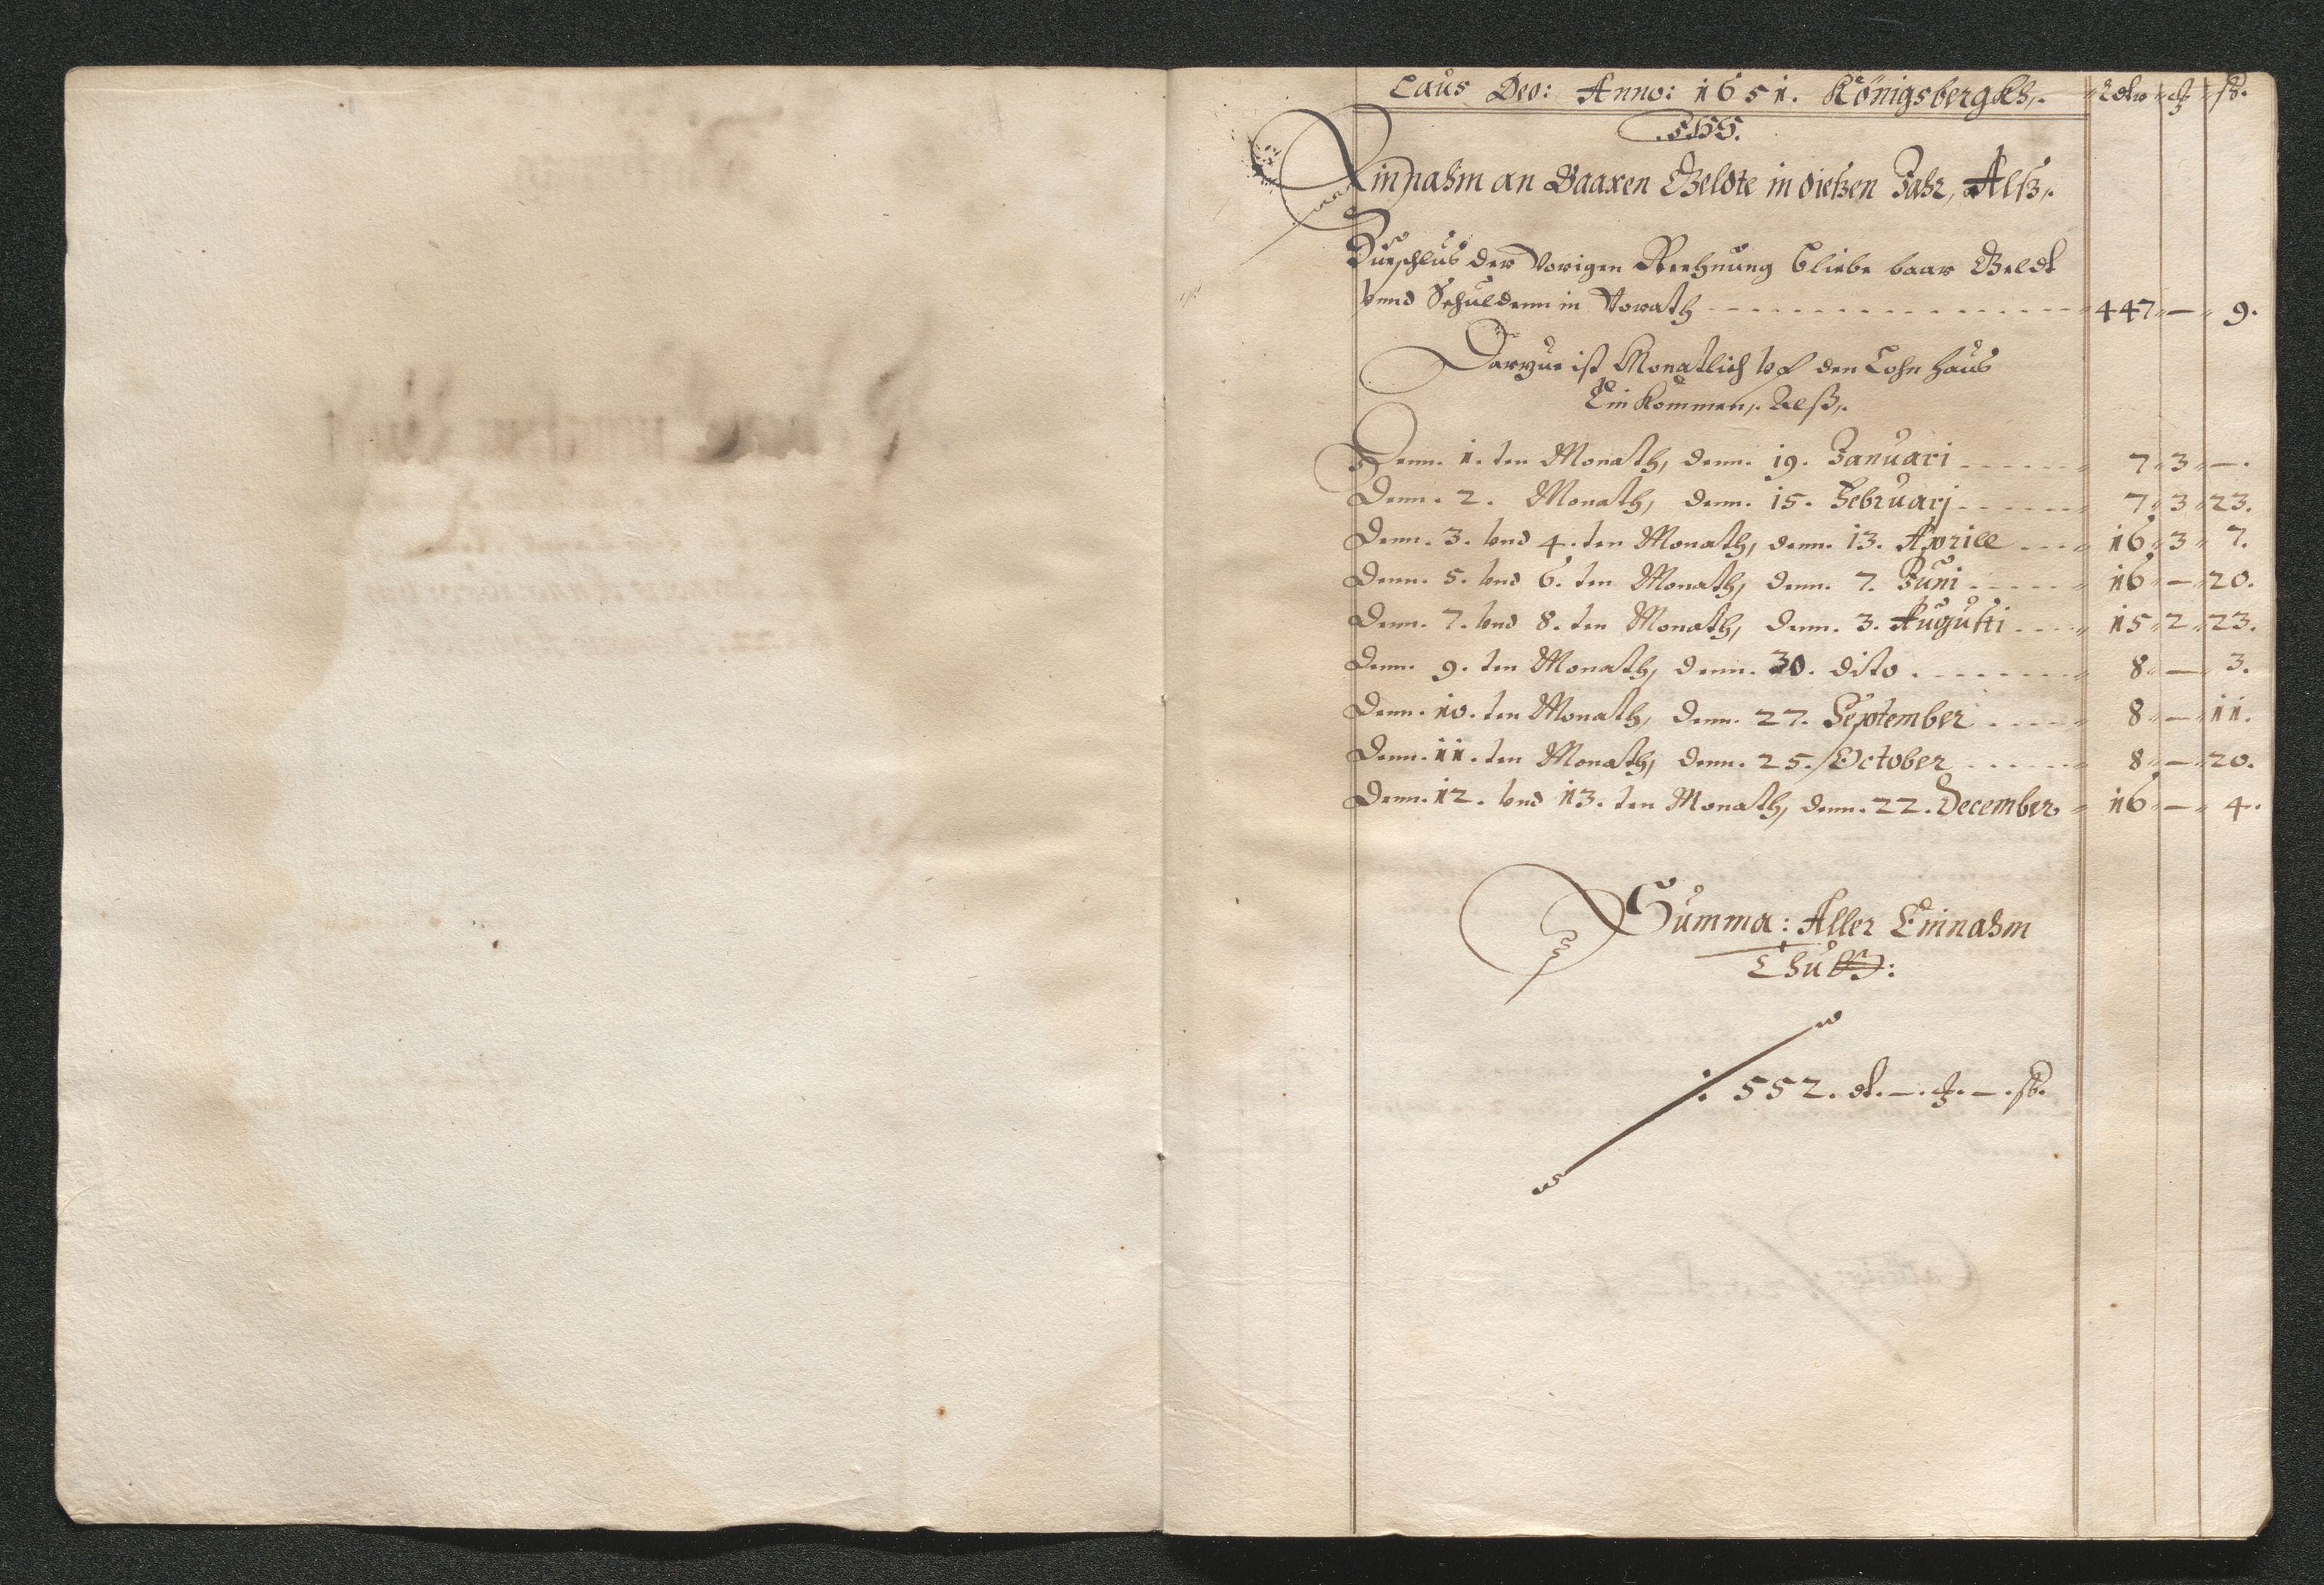 Laus Deo: Anno: 1651. Königsbergkh,.
Einnahm an Baaren Geldte in dießen Jahr, Alß,.
Zur schlus der Vorigen Rechnung blieb baar Geldt
vnnd Schuldenn in Vorath 447 — 9.
Darzue ist Monatlich vf den Lohn haus
Ein kommen,. Alß,.
Denn. 1. ten Monath, denn. 19. Januari 7 3 —.
Denn. 2. Monath, denn. 15. Februarj 7 3 23.
Denn. 3. vnd 4. ten Monath, denn. 13. Aprill 16 3 7.
Denn. 5. vnd 6. ten Monath, denn. 7. Juni 16 — 20.
Denn. 7. vnd 8. ten Monath, denn. 3. Augusti 15 2 23.
Denn. 9. ten Monath, denn. 30. dito 8 — 3.
Denn. 10. ten Monath, denn. 27. September 8 — 11.
Denn. 11. ten Monath, denn. 25. October 8 — 20.
Denn. 12. vnd 13. ten Monath, denn. 22. December 16 — 4.
Summa: Aller Einnahm
Thutt:
552.